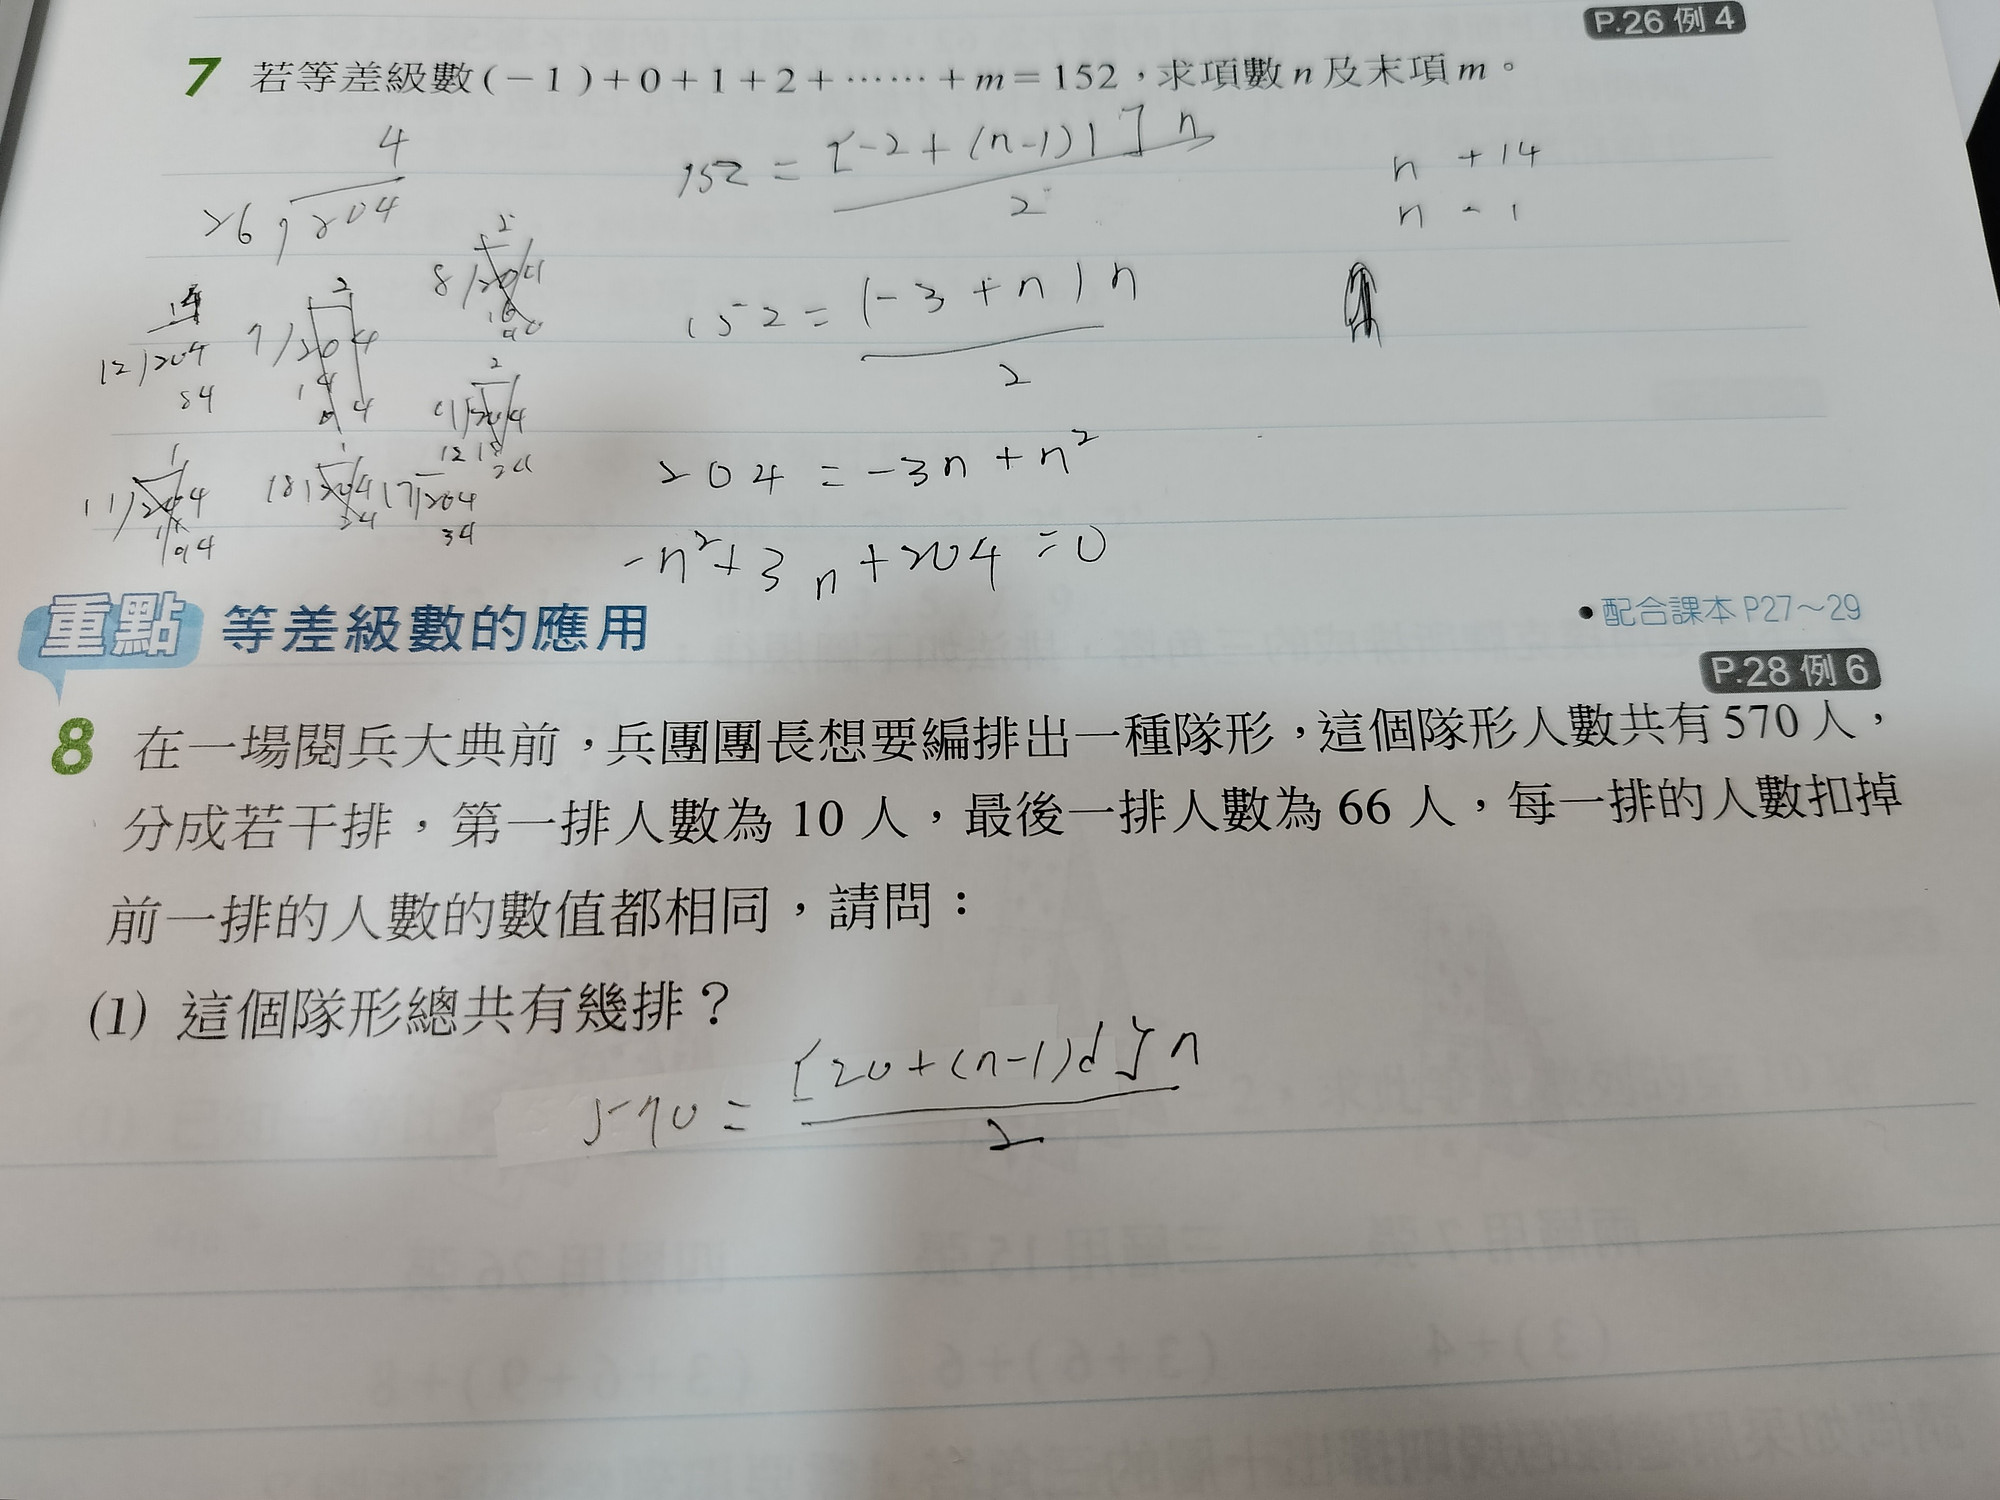 P.26 例 4
7 若等差級數(－1)＋0＋1＋2＋……＋m＝152，求項數 n 及末項 m。
152 = [-2+(n-1)1]n
2
n +14
n -1
152 = (-3+n)n
2
204 = -3n+n²
-n²+3n+204=0
4
26)204
12)204
84
2
7)204
14
64
2
8)204
16
2
204
1
11)204
11
94
1
18)204
24
12
17)204
34
重點 等差級數的應用
•配合課本 P27～29
P.28 例 6
8 在一場閱兵大典前，兵團團長想要編排出一種隊形，這個隊形人數共有 570 人，
分成若干排，第一排人數為 10 人，最後一排人數為 66 人，每一排的人數扣掉
前一排的人數的數值都相同，請問：
(1) 這個隊形總共有幾排？
570 = [20+(n-1)d]n
2